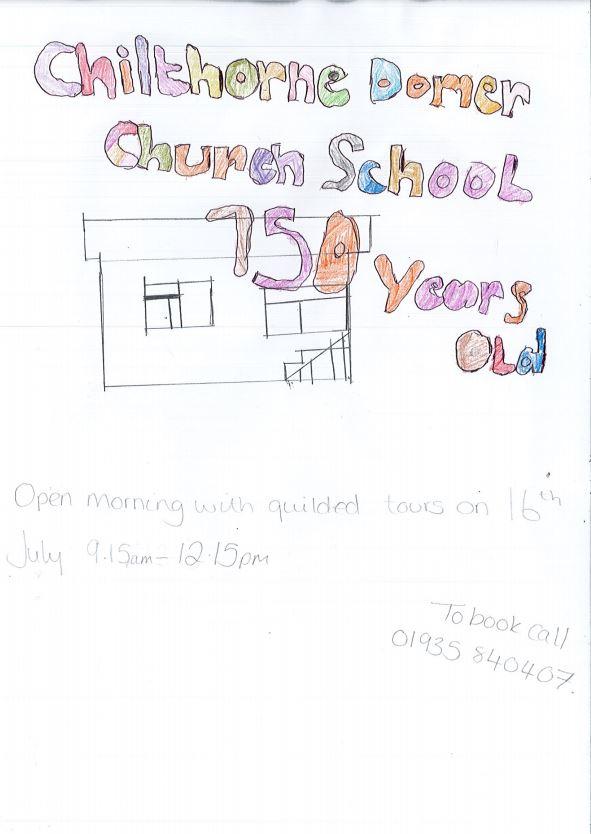 Chilthorne Domer
Church School
750 Years
Old
Open morning with quilded tours on 16th
July 9.15am - 12.15pm
To book call
01935 840407.